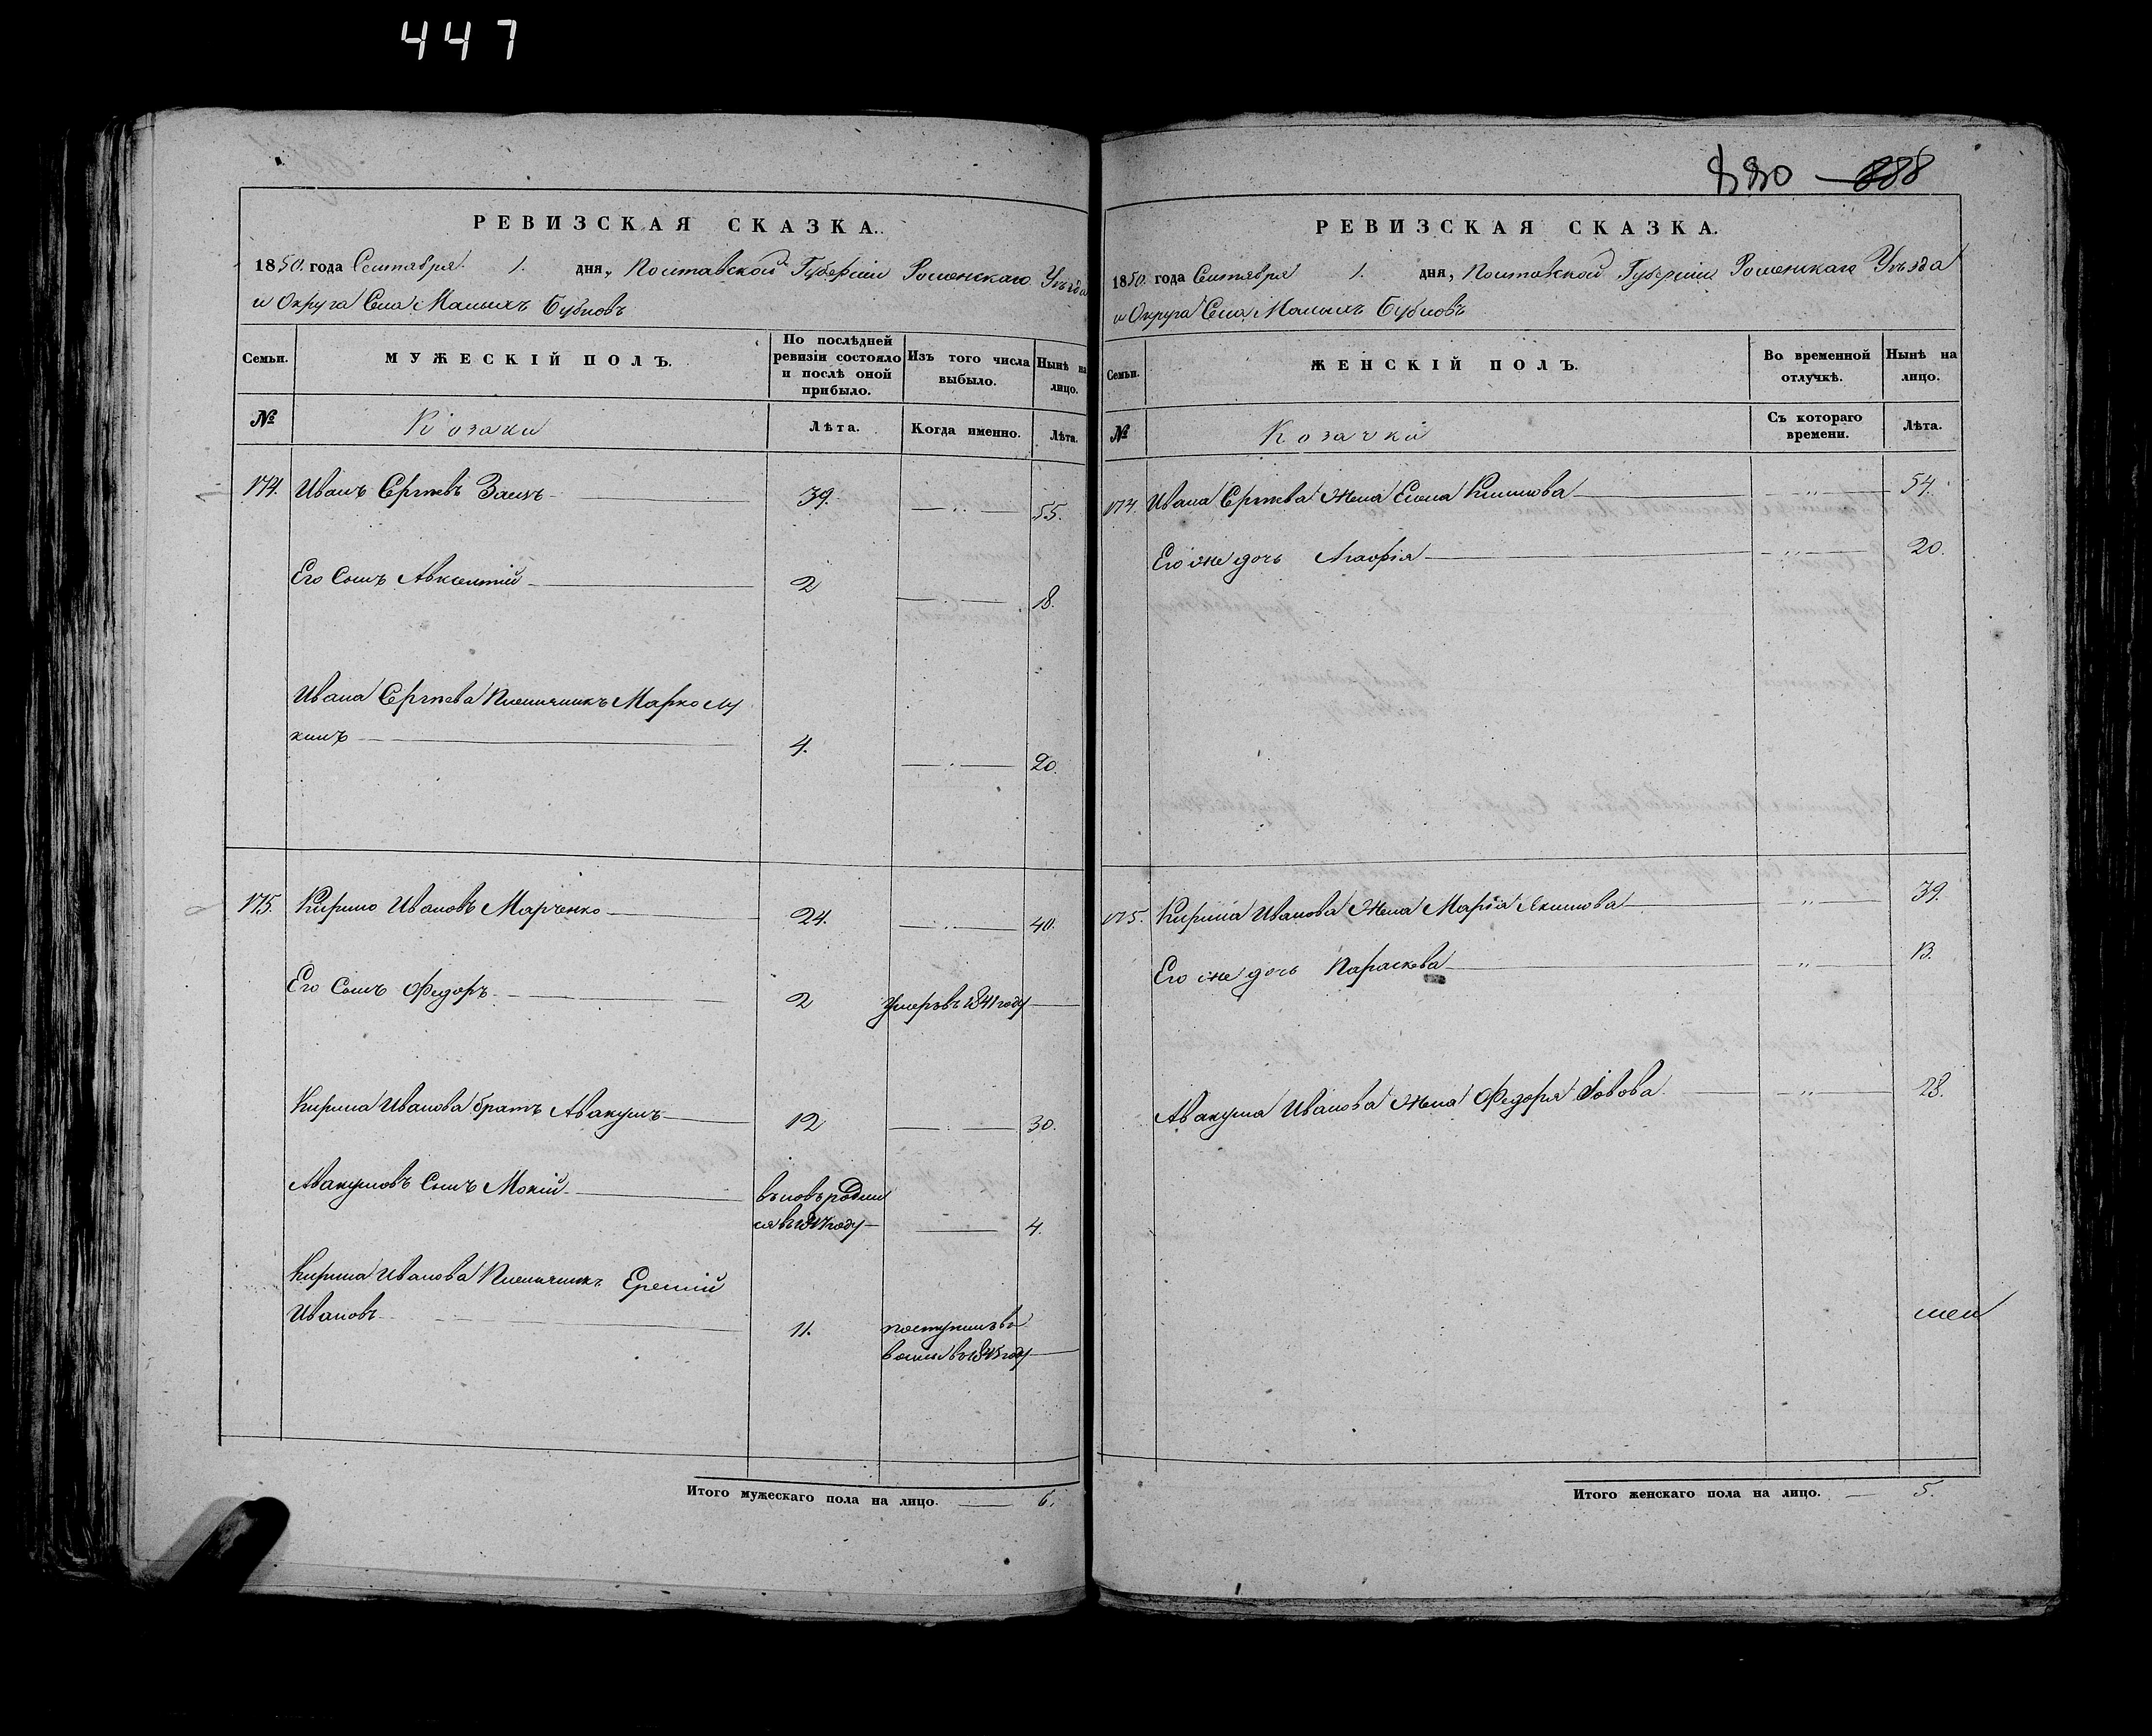 447
880 888
РЕВИЗСКАЯ СКАЗКА.
1850. года Сентября 1. дня, Полтавской Губерніи Роменскаго Уѣзда
и Округа Села Малыхъ Бубновъ
Семьи.
МУЖЕСКІЙ ПОЛЪ.
По послѣдней ревизіи состояло и послѣ оной прибыло.
Изъ того числа выбыло.
Нынѣ на лицо.
№
Козаки
Лѣта.
Когда именно.
Лѣта.
174. Иванъ Сергѣевъ Заицъ 39. 55.
Его Сынъ Авксентій 2 18.
Ивана Сергѣева Племянникъ Марко Лу
кинъ 4. 20.
175. Кирило Ивановъ Марченко 24. 40.
Его Сынъ Федоръ 2 умеръ въ 1841 году
Кирила Иванова братъ Авакумъ 12 30.
Авакумовъ Сынъ Мокій вновь родил
ся въ 1847 году 4.
Кирила Иванова Племянникъ Еремій
Ивановъ 11. поступилъ въ
въ 1845 году
Итого мужескаго пола на лицо. 6.
РЕВИЗСКАЯ СКАЗКА.
1850. года Сентября 1. дня, Полтавской Губерніи Роменскаго Уѣзда
и Округа Села Малыхъ Бубновъ
Семьи.
ЖЕНСКІЙ ПОЛЪ.
Во временной отлучкѣ.
Нынѣ на лицо.
№
Козачки
Съ котораго времени.
Лѣта.
174. Ивана Сергѣева Жена Елена Климова „ 54.
Его же дочь Агафія „ 20.
175. Кирила Иванова Жена Марія Якимова „ 39.
Его же дочь Параскева „ 13.
Авакума Иванова Жена Федора Іовова „ 28.
Итого женскаго пола на лицо. 5.